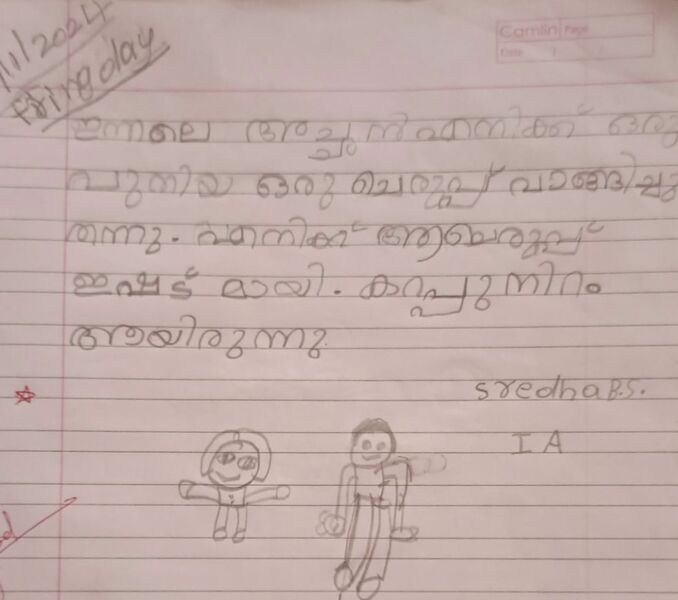 1/1/2024
Friday
Camlin Page
Date / /
ഇന്നലെ അച്ചൻ എനിക്ക് ഒരു
പുതിയ ഒരു ചെരുപ്പ് വാങ്ങിച്ചു
തന്നു. എനിക്ക് ആ ചെരുപ്പ്
ഇഷട് മായി. കറുപ്പു നിറം
ആയിരുന്നു
Sredha B.S.
I A